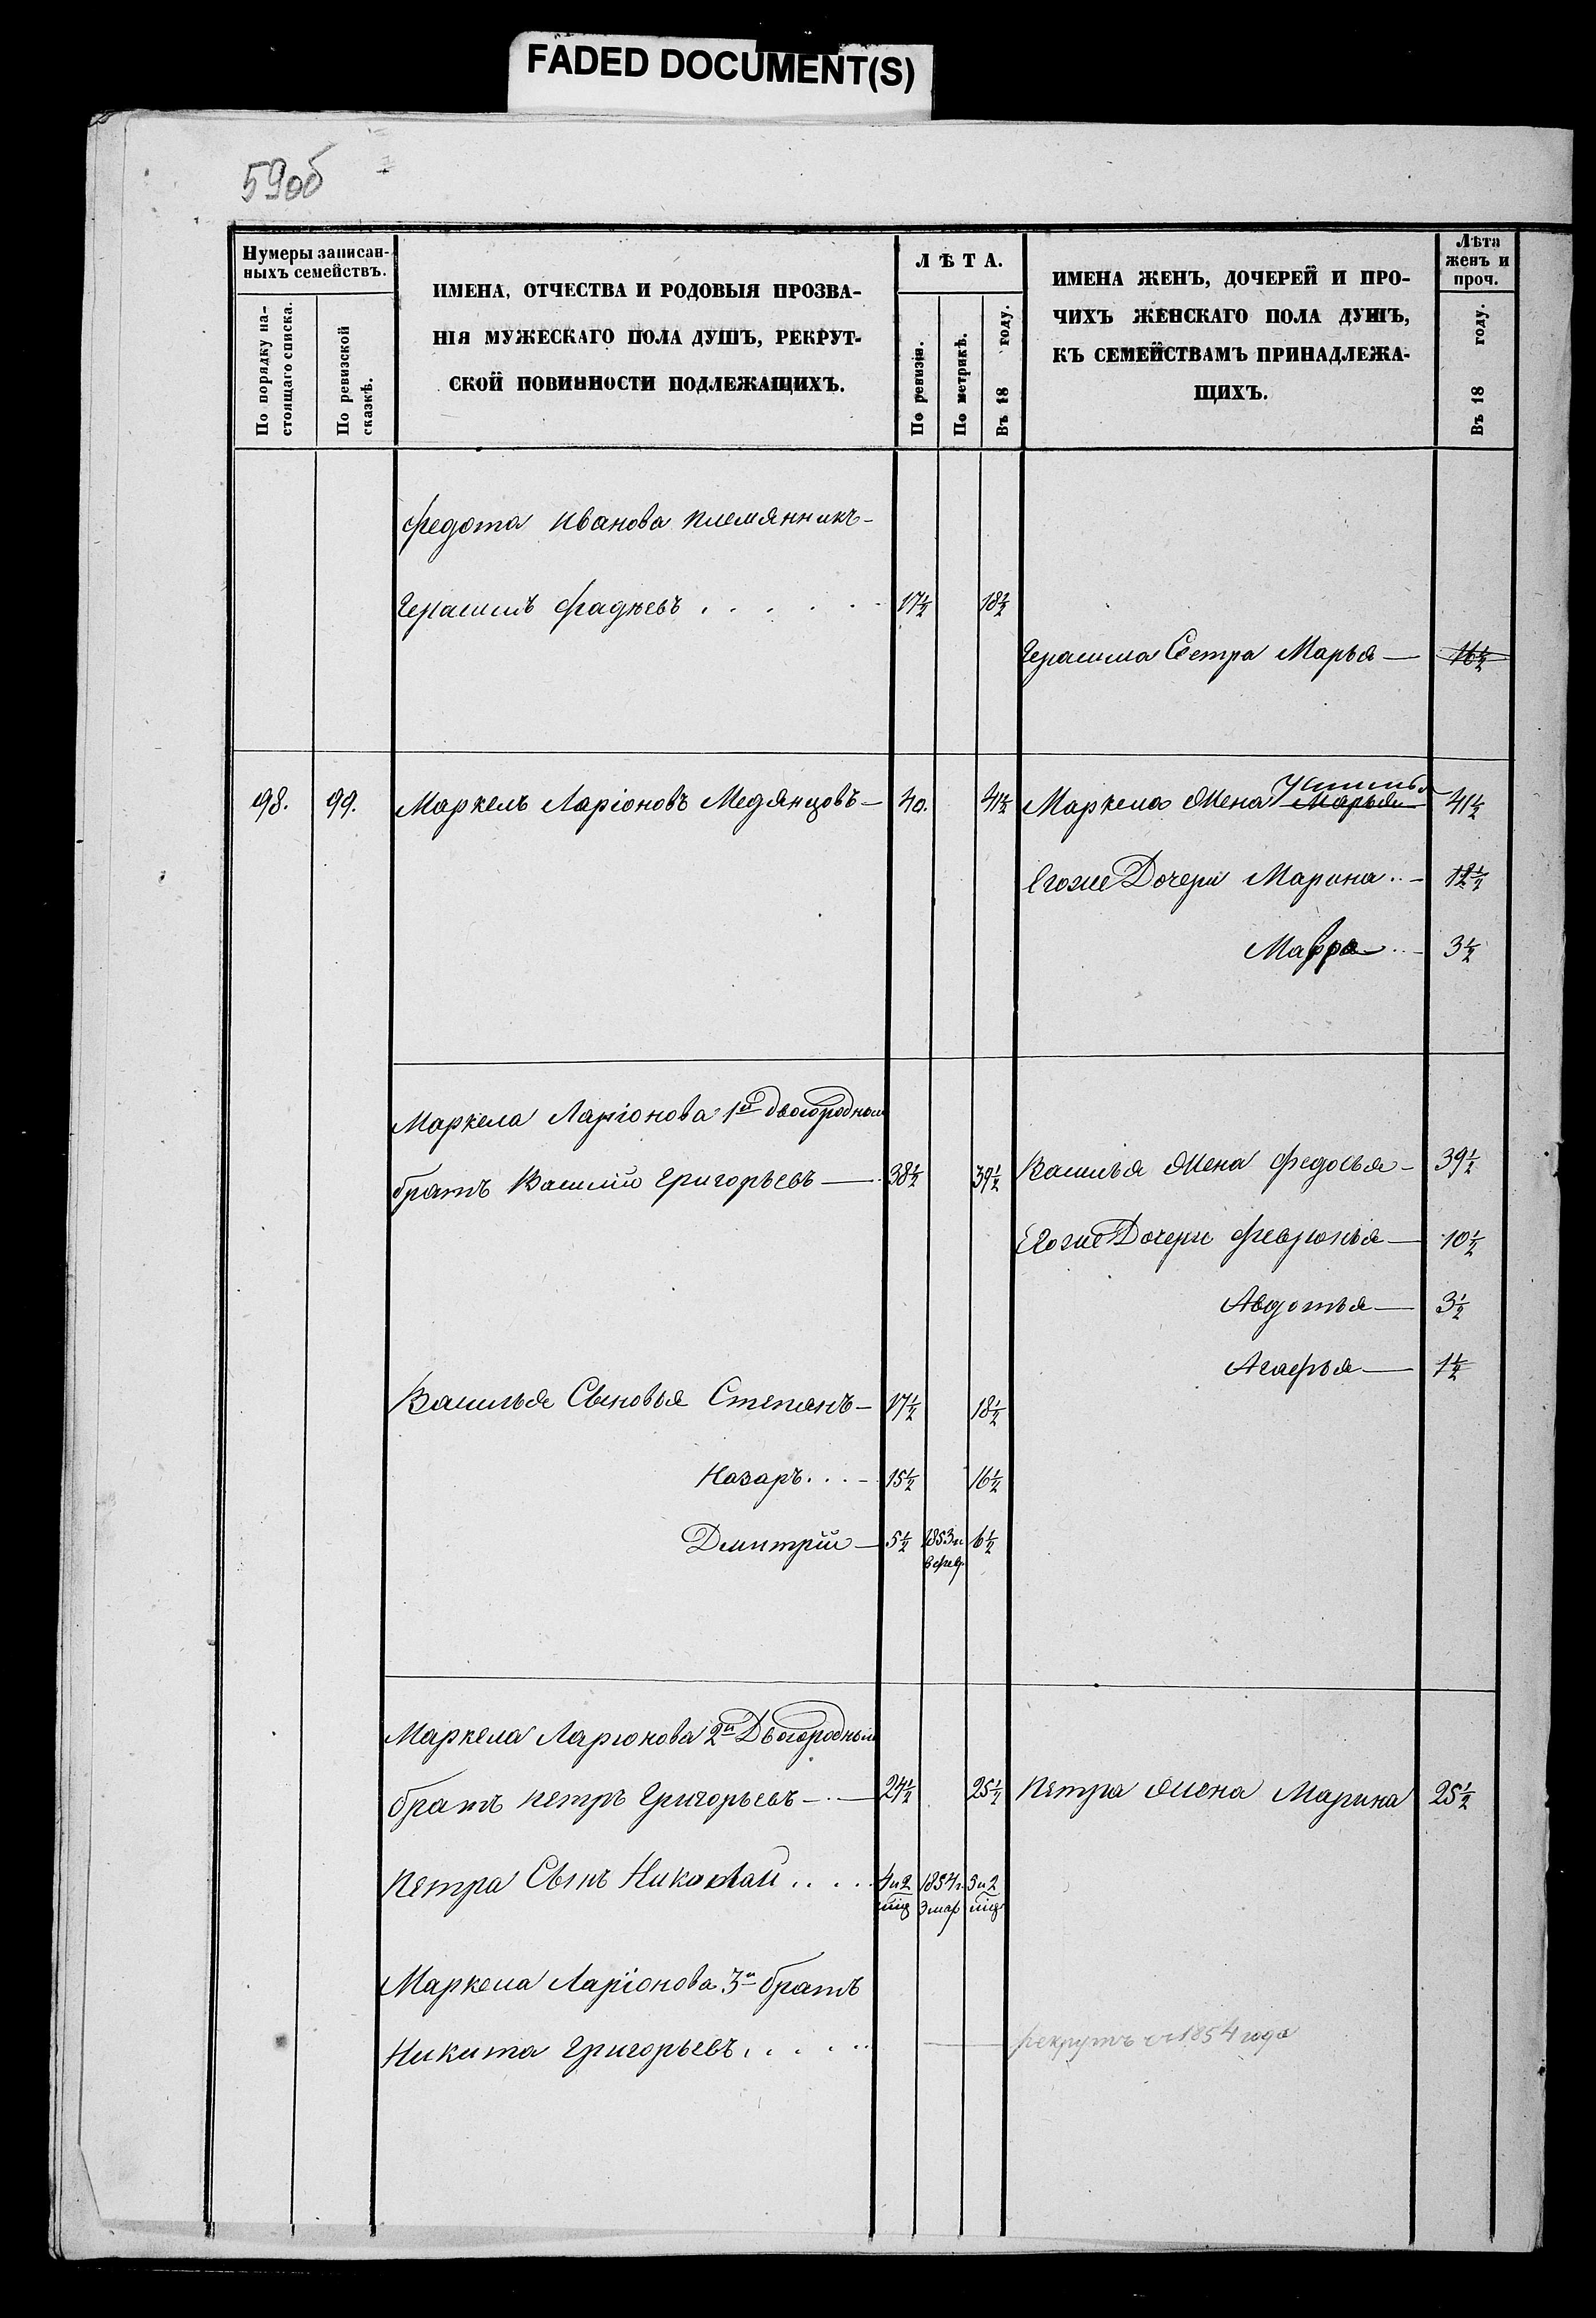 FADED DOCUMENT(S)
59об
Нумеры записан-
ныхъ семействъ.
По порядку на-
стоящаго списка.
По ревизской
сказкѣ.
ИМЕНА, ОТЧЕСТВА И РОДОВЫЯ ПРОЗВА-
НІЯ МУЖЕСКАГО ПОЛА ДУШЪ, РЕКРУТ-
СКОЙ ПОВИННОСТИ ПОДЛЕЖАЩИХЪ.
ЛѢТА.
По ревизіи.
По метрикѣ.
Въ 18 году.
ИМЕНА ЖЕНЪ, ДОЧЕРЕЙ И ПРО-
ЧИХЪ ЖЕНСКАГО ПОЛА ДУШЪ,
КЪ СЕМЕЙСТВАМЪ ПРИНАДЛЕЖА-
ЩИХЪ.
Лѣта
женъ и
проч.
Въ 18 году.
Федота Иванова племянникъ-
Герасимъ Фадѣевъ . . . . . . 17½ 18½
Герасима Сестра Марья — 16½
98. 99. Маркелъ Ларіоновъ Медянцовъ - 40. 41½ Маркела Жена Марья Устинья 41½
Егоже Дочери Марина .. - 12½
Мавра .. - 3½
Маркела Ларіонова 1й двоюродный
братъ Василій Григорьевъ — 38½ 39½ Василья Жена Федосья - 39½
Егоже Дочери Февронья — 10½
Авдотья — 3½
Агафья — 1½
Василья Сыновья Степанъ - 17½ 18½
Назаръ. . . - 15½ 16½
Дмитрій - 5½ 1853 г. 6½
Маркела Ларіонова 2й Двоюродный
братъ Петръ Григорьевъ - . — 24½ 25½ Петра Жена Марина 25½
Петра Сынъ Николай . . . . . 4 и 2 1854 г. 3 и 2
мѣс 3 мар мѣс
Маркела Ларіонова 3й братъ
Никита Григорьевъ. . . . . . — рекрутъ съ 1854 года